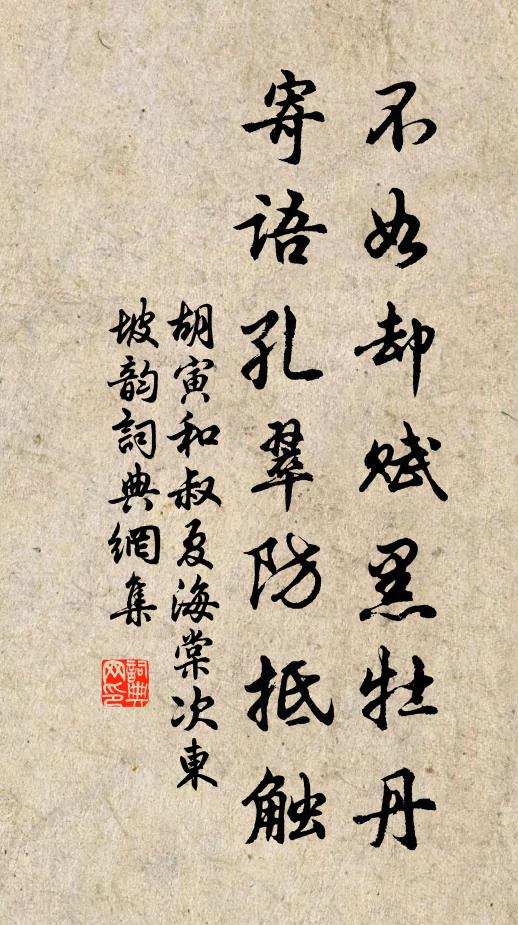 不如却赋黑牡丹
寄语孔翠防抵触
胡寅和叔夏海棠次東
坡韵詞典網集
詞典
网印